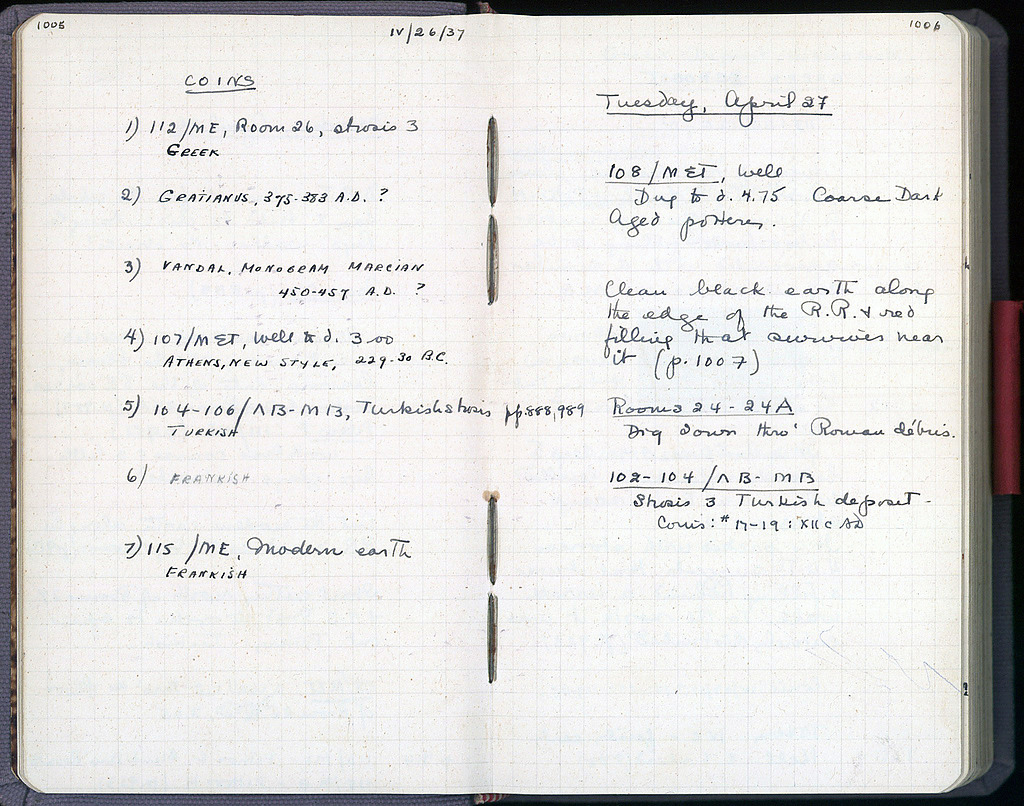 1005
IV/26/37
COINS
1) 112/ME, Room 26, strosis 3
GREEK
2) GRATIANUS, 375-383 A.D. ?
3) VANDAL, MONOGRAM MARCIAN
450-457 A.D. ?
4) 107/MΣT, Well to d. 3.00
ATHENS, NEW STYLE, 229-30 B.C.
5) 104-106/ΛB-MB, Turkish strosis pp. 888, 989
TURKISH
6) FRANKISH
7) 115 /ME, Modern earth
FRANKISH
1006
Tuesday, April 27
108/MΣT, Well
Dug to d. 4.75 Coarse Dark
Aged pottery.
Clean black earth along
the edge of the R.R. & red
filling that survives near
it (p. 1007)
Rooms 24-24A
Dig down thro' Roman débris.
102-104/ΛB-MB
Strosis 3 Turkish deposit -
Coins: #17-19: XII c AD